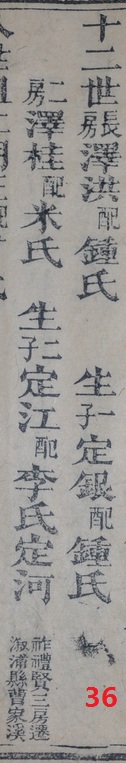 十二世長房澤洪配鍾氏 生子一定銀配鍾氏
二房澤桂配米氏 生子二定江配李氏定河
祚禮賢三房遷
溆浦縣曹家溪
36